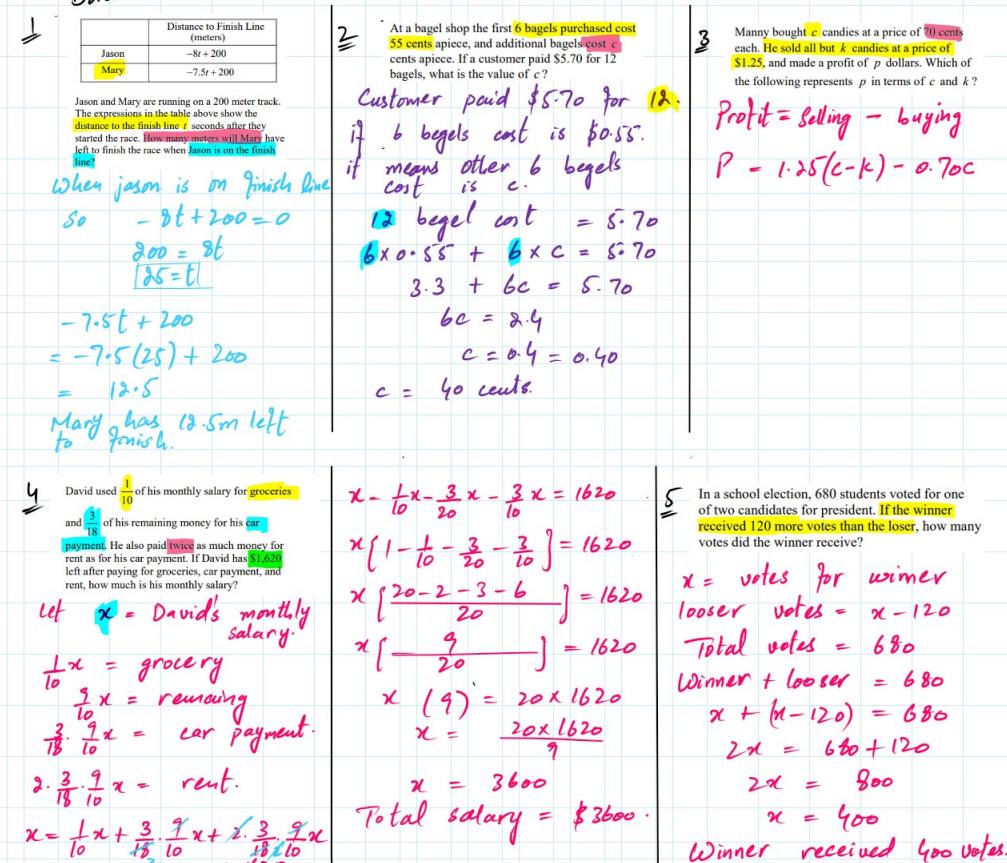 1
Distance to Finish Line
(meters)
Jason
−8t + 200
Mary
−7.5t + 200
Jason and Mary are running on a 200 meter track.
The expressions in the table above show the
distance to the finish line t seconds after they
started the race. How many meters will Mary have
left to finish the race when Jason is on the finish
line?
When jason is on finish line
So - 8t + 200 = 0
200 = 8t
25 = t
- 7.5t + 200
= -7.5(25) + 200
= 12.5
Mary has 12.5m left
to finish.
2
At a bagel shop the first 6 bagels purchased cost
55 cents apiece, and additional bagels cost c
cents apiece. If a customer paid $5.70 for 12
bagels, what is the value of c?
Customer paid $5.70 for 12.
if 6 begels cost is $0.55.
it means other 6 begels
cost is c.
12 begel cost = 5.70
6 x 0.55 + 6 x c = 5.70
3.3 + 6c = 5.70
6c = 2.4
c = 0.4 = 0.40
c = 40 cents.
3
Manny bought c candies at a price of 70 cents
each. He sold all but k candies at a price of
$1.25, and made a profit of p dollars. Which of
the following represents p in terms of c and k?
Profit = Selling - buying
P = 1.25(c-k) - 0.70c
4
David used 1/10 of his monthly salary for groceries
and 3/18 of his remaining money for his car
payment. He also paid twice as much money for
rent as for his car payment. If David has $1,620
left after paying for groceries, car payment, and
rent, how much is his monthly salary?
Let x = David's monthly
salary.
1/10 x = grocery
9/10 x = remaing
3/18 . 9/10 x = car payment.
2. 3/18 . 9/10 x = rent.
x = 1/10 x + 3/18 . 9/10 x + 2. 3/18 . 9/10 x
x - 1/10 x - 3/20 x - 3/10 x = 1620
x [1 - 1/10 - 3/20 - 3/10] = 1620
x [20 - 2 - 3 - 6 / 20] = 1620
x [9 / 20] = 1620
x (9) = 20 x 1620
x = 20 x 1620 / 9
x = 3600
Total salary = $3600.
5
In a school election, 680 students voted for one
of two candidates for president. If the winner
received 120 more votes than the loser, how many
votes did the winner receive?
x = votes for winner
looser votes = x - 120
Total votes = 680
Winner + looser = 680
x + (x - 120) = 680
2x = 680 + 120
2x = 800
x = 400
Winner received 400 votes.